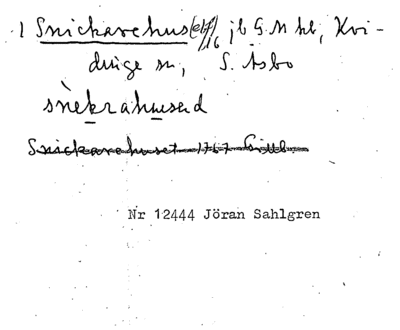 1 Snickarehus(et) 1/16 jb G. M hb, Kvi-
dinge sn, S. Åsbo
snekrahused
Snickarehuset 1767
Nr 12444 Jöran Sahlgren